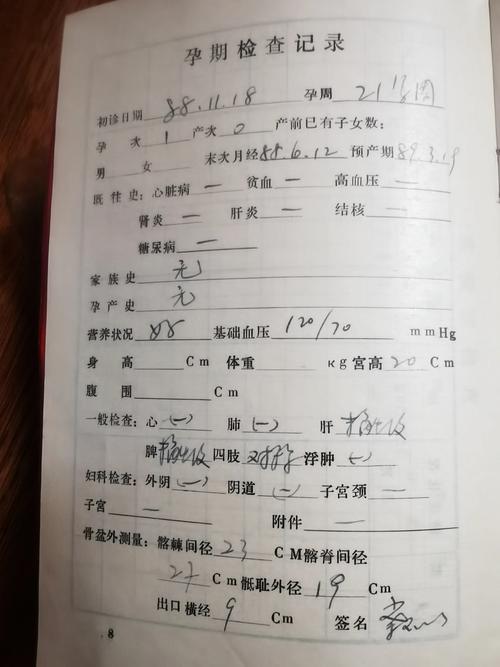 孕期检查记录
初诊日期 88.11.18 孕周 21 周
孕 次 1 产次 0 产前已有子女数:
男 女 末次月经 88.6.12 预产期 89.3.19
既往史: 心脏病 — 贫血 — 高血压 —
肾炎 — 肝炎 — 结核 —
糖尿病 —
家族史 无
孕产史 无
营养状况 好 基础血压 120/70 mmHg
身 高 Cm 体重 Kg 宫高 20 Cm
腹 围 Cm
一般检查: 心 (-) 肺 (-) 肝
脾 四肢 对称 浮肿 (-)
妇科检查: 外阴 (-) 阴道 (-) 子宫颈 —
子宫 — 附件 —
骨盆外测量: 髂棘间径 23 CM 髂脊间径
27 Cm 骶耻外径 19 Cm
出口横经 9 Cm 签名
8